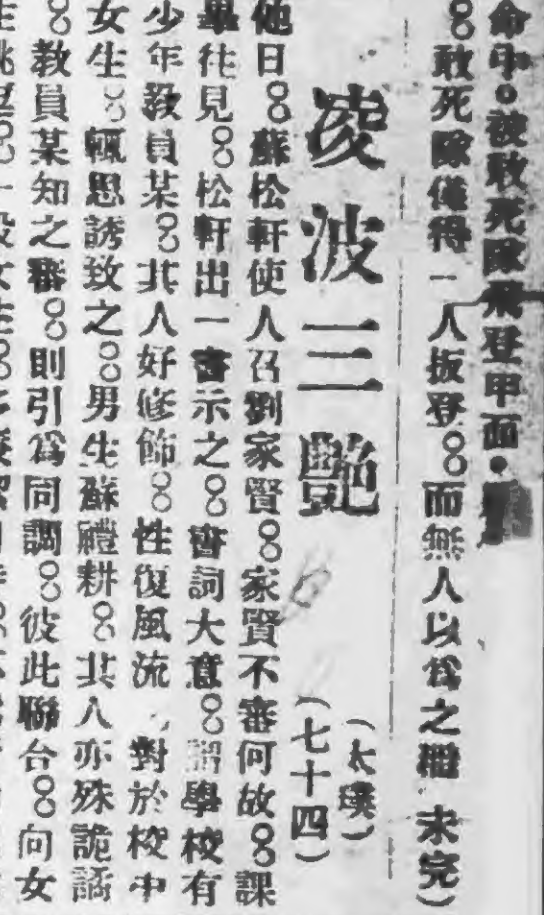 命中。被敢死隊飛登甲面。
。敢死隊僅得一人扳登。而無人以爲之繼 未完)
凌波三艷
(太瑛)
(七十四)
他日。蘇松軒使人召劉家賢。家賢不審何故。課
畢往見。松軒出一書示之。書詞大意。謂學校有
少年教員某。其人好修飾。性復風流，對於校中
女生。輒思誘致之。男生蘇禮耕。其人亦殊詭譎
。教員某知之審。則引爲同調。彼此聯合。向女